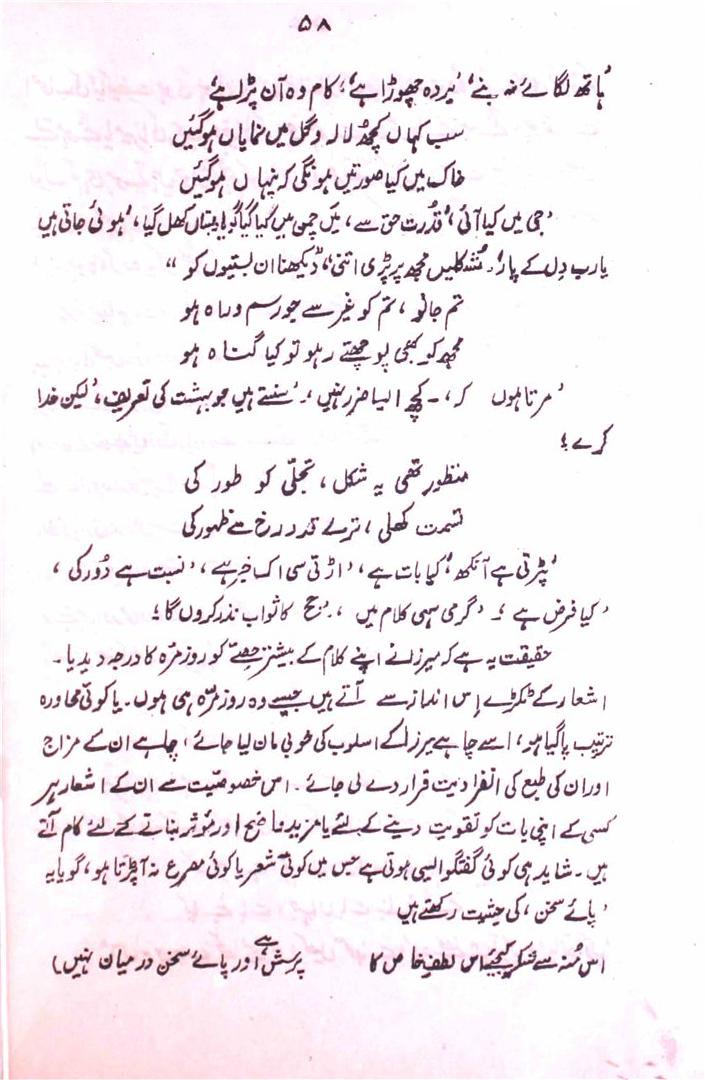 ۵۸
'ہاتھ لگائے نہ بنے'، 'پردہ چھوڑا ہے'، 'کام وہ آن پڑا ہے'
سب کہاں کچھ لالہ و گل میں نمایاں ہوگئیں
خاک میں کیا صورتیں ہونگی کہ پنہاں ہوگئیں
'جی میں کیا آئی'، 'قدرت حق سے'، 'میں چمن میں کیا گیا گویا دبستاں کھل گیا'، 'ہوئی جاتی ہیں
یارب دل کے پار'۔ 'مشکلیں مجھ پر پڑی اتنی'، 'دیکھنا ان بستیوں کو''
تم جانو، تم کو غیر سے جو رسم و راہ ہو
مجھ کو بھی پوچھتے رہو تو کیا گناہ ہو
'مرتا ہوں کہ'، ۔ کچھ ایسا ضرر نہیں'،۔ 'سنتے ہیں جو بہشت کی تعریف'، 'لیکن خدا
کرے؛
منظور تھی یہ شکل، تجلّی کو طور کی
قسمت کھلی، ترے قد و رخ سے ظہور کی
'پڑتی ہے آنکھ'، 'کیا بات ہے'، 'اڑتی سی اک خبر ہے'، 'نسبت ہے دُور کی'،
'کیا فرض ہے'؛۔ 'گرمی سہی کلام میں'،۔ 'حج کا ثواب نذر کروں گا'؛
حقیقت یہ ہے کہ میرزا نے اپنے کلام کے بیشتر حصّے کو روزمرّہ کا درجہ دیدیا۔
اشعار کے ٹکڑے اِس انداز سے آتے ہیں جیسے وہ روزمرّہ ہی ہوں۔ یا کوئی محاورہ
ترتیب پا گیا ہو، اسے چاہے میرزا کے اسلوب کی خوبی مان لیا جائے، چاہے ان کے مزاج
اور ان کی طبع کی انفرادیت قرار دے لی جائے۔ اس خصوصیّت سے ان کے اشعار ہر
کسی کے اپنی بات کو تقویت دینے کے لئے یا مزید واضح اور مؤثر بنانے کے لئے کام آتے
ہیں۔ شاید ہی کوئی گفتگو ایسی ہوتی ہے جس میں کوئی شعر یا کوئی مصرع نہ آپڑتا ہو، گویا یہ
'پائے سخن'، کی حیثیت رکھتے ہیں
اس مُنہ سے شکر کیجئے اس لطفِ خاص کا پرسش ہے اور پائے سخن درمیان نہیں)